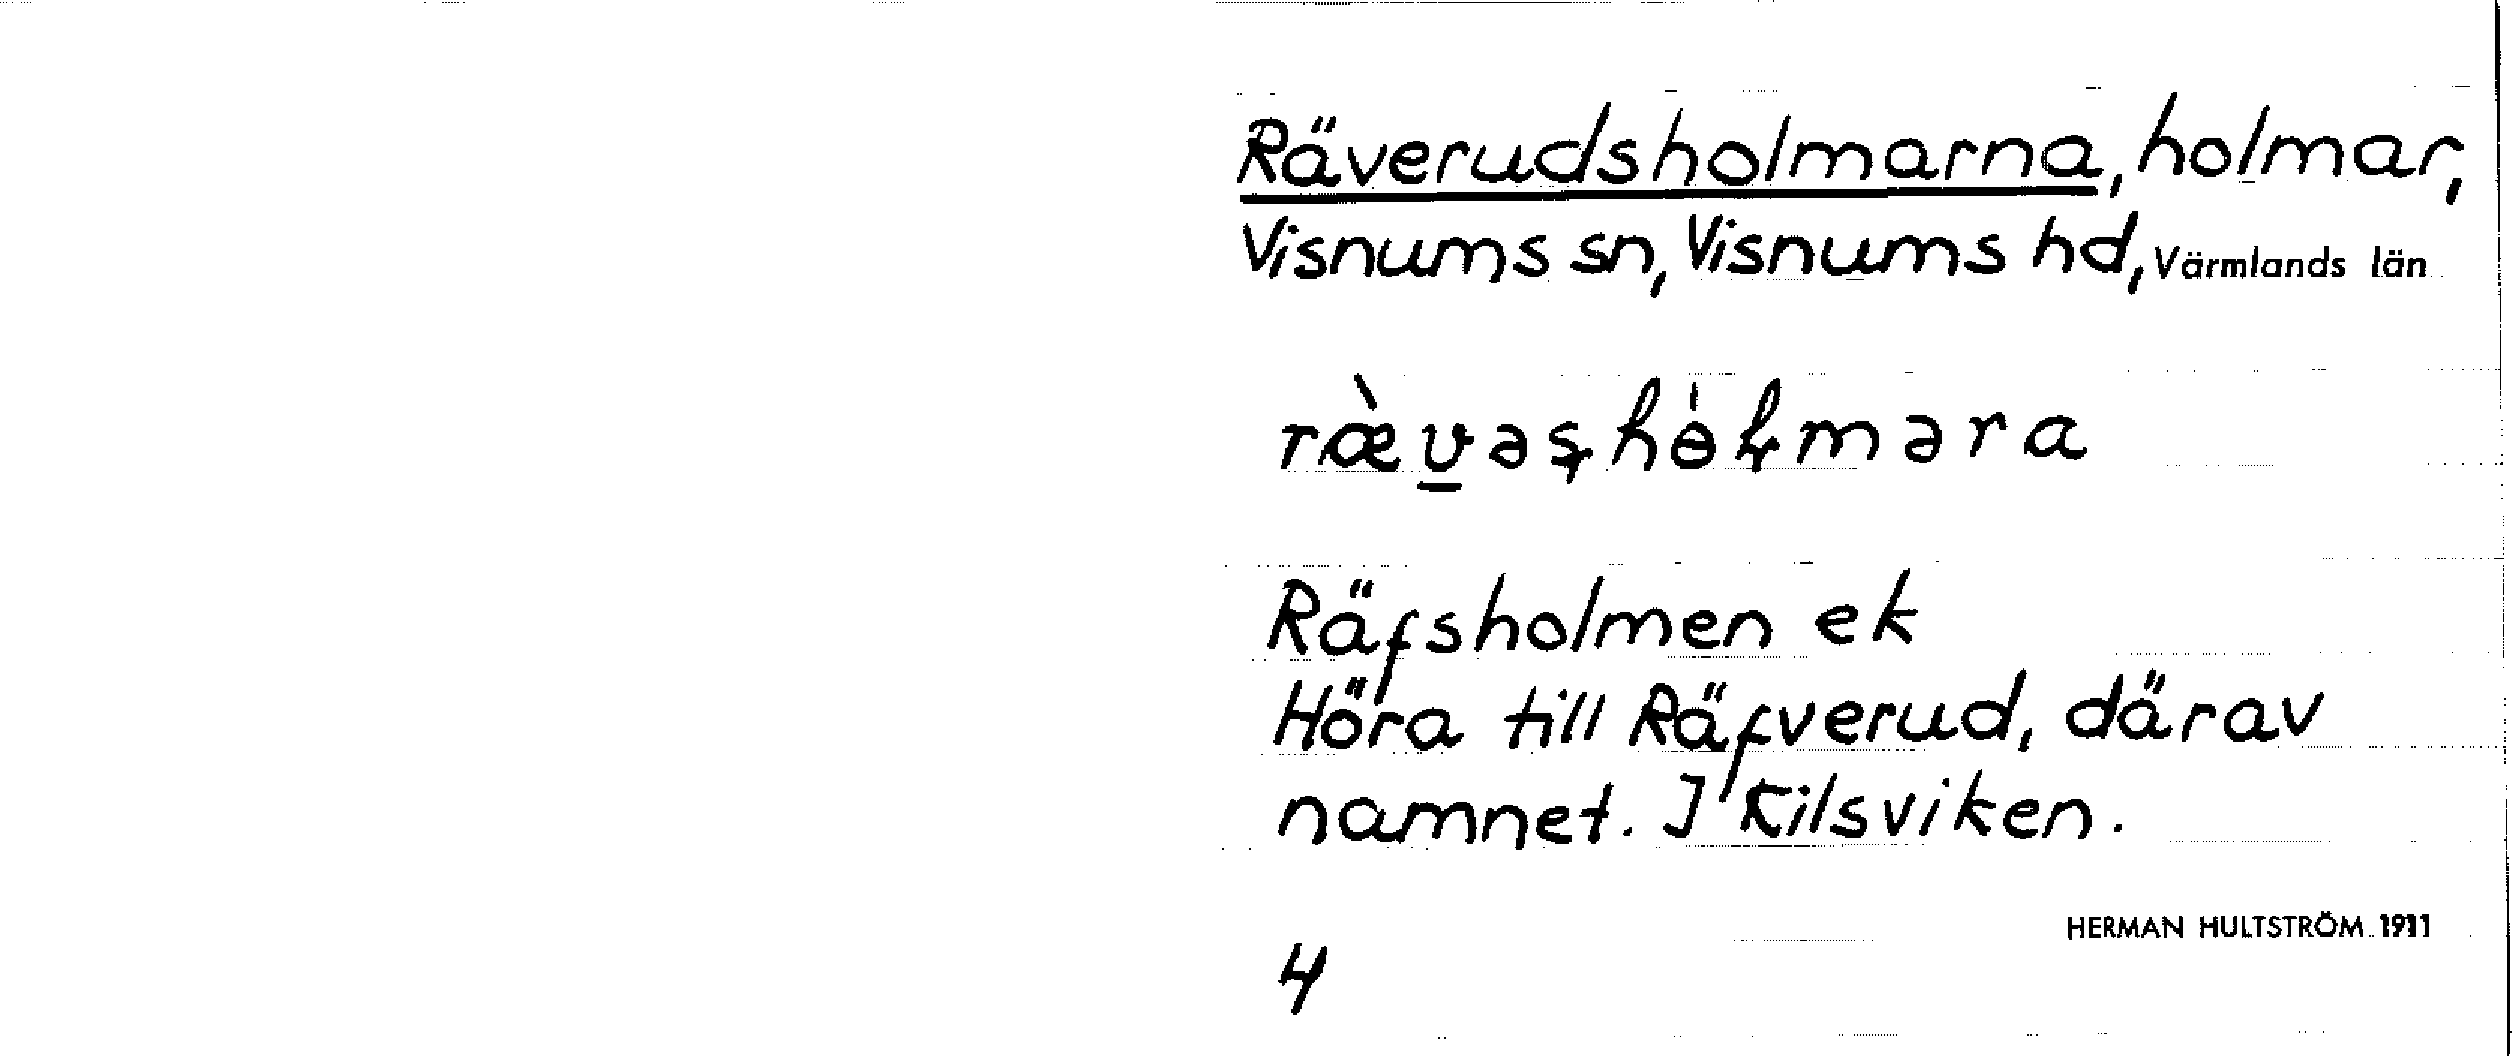 Räverudsholmarna, holmar,
Visnums sn, Visnums hd, Värmlands län
Räfsholmen ek
Höra till Räfverud, därav
namnet. I Kilsviken.
HERMAN HULTSTRÖM 1911
4